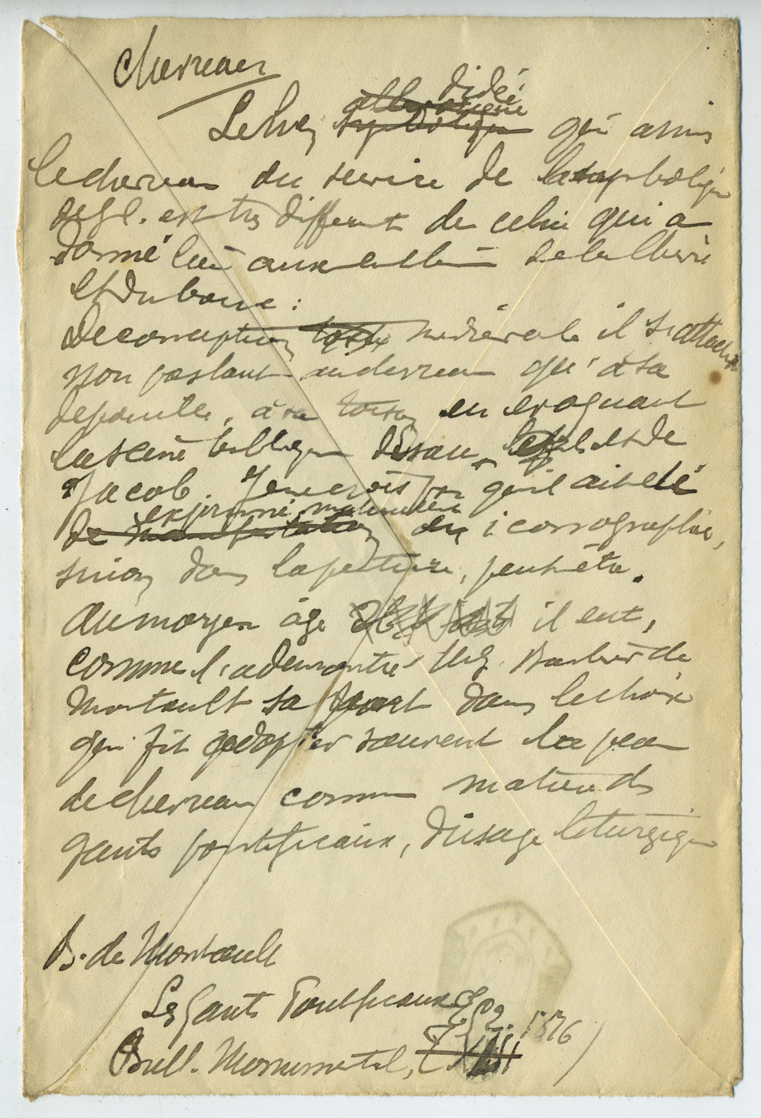 Chevreau
idée
allégorique
Le symbolique qui a mis
le chevreau au service de la symbolique
de l'Egl. est très différent de celui qui a
donné lieu aux emblèmes de la Chèvre
et du bouc :
De conception médiévale il s'attache
non pas tant au chevreau qu'à sa
dépouille, à sa toison en évoquant
la scène biblique d'Esaü et de
Jacob. Je ne crois pas qu'il ait été
exprimé matériellement
de manifestation en iconographie,
sinon dans la peinture, peut-être.
Au moyen âge il eut,
comme l'a démontré Mgr Barbier de
Montault sa part dans le choix
qui fit adopter souvent la peau
de chevreau comme matière des
gants pontificaux, d'usage liturgique
B. de Montault
Les Gants Pontificaux 1876)
Bull. Monumental,